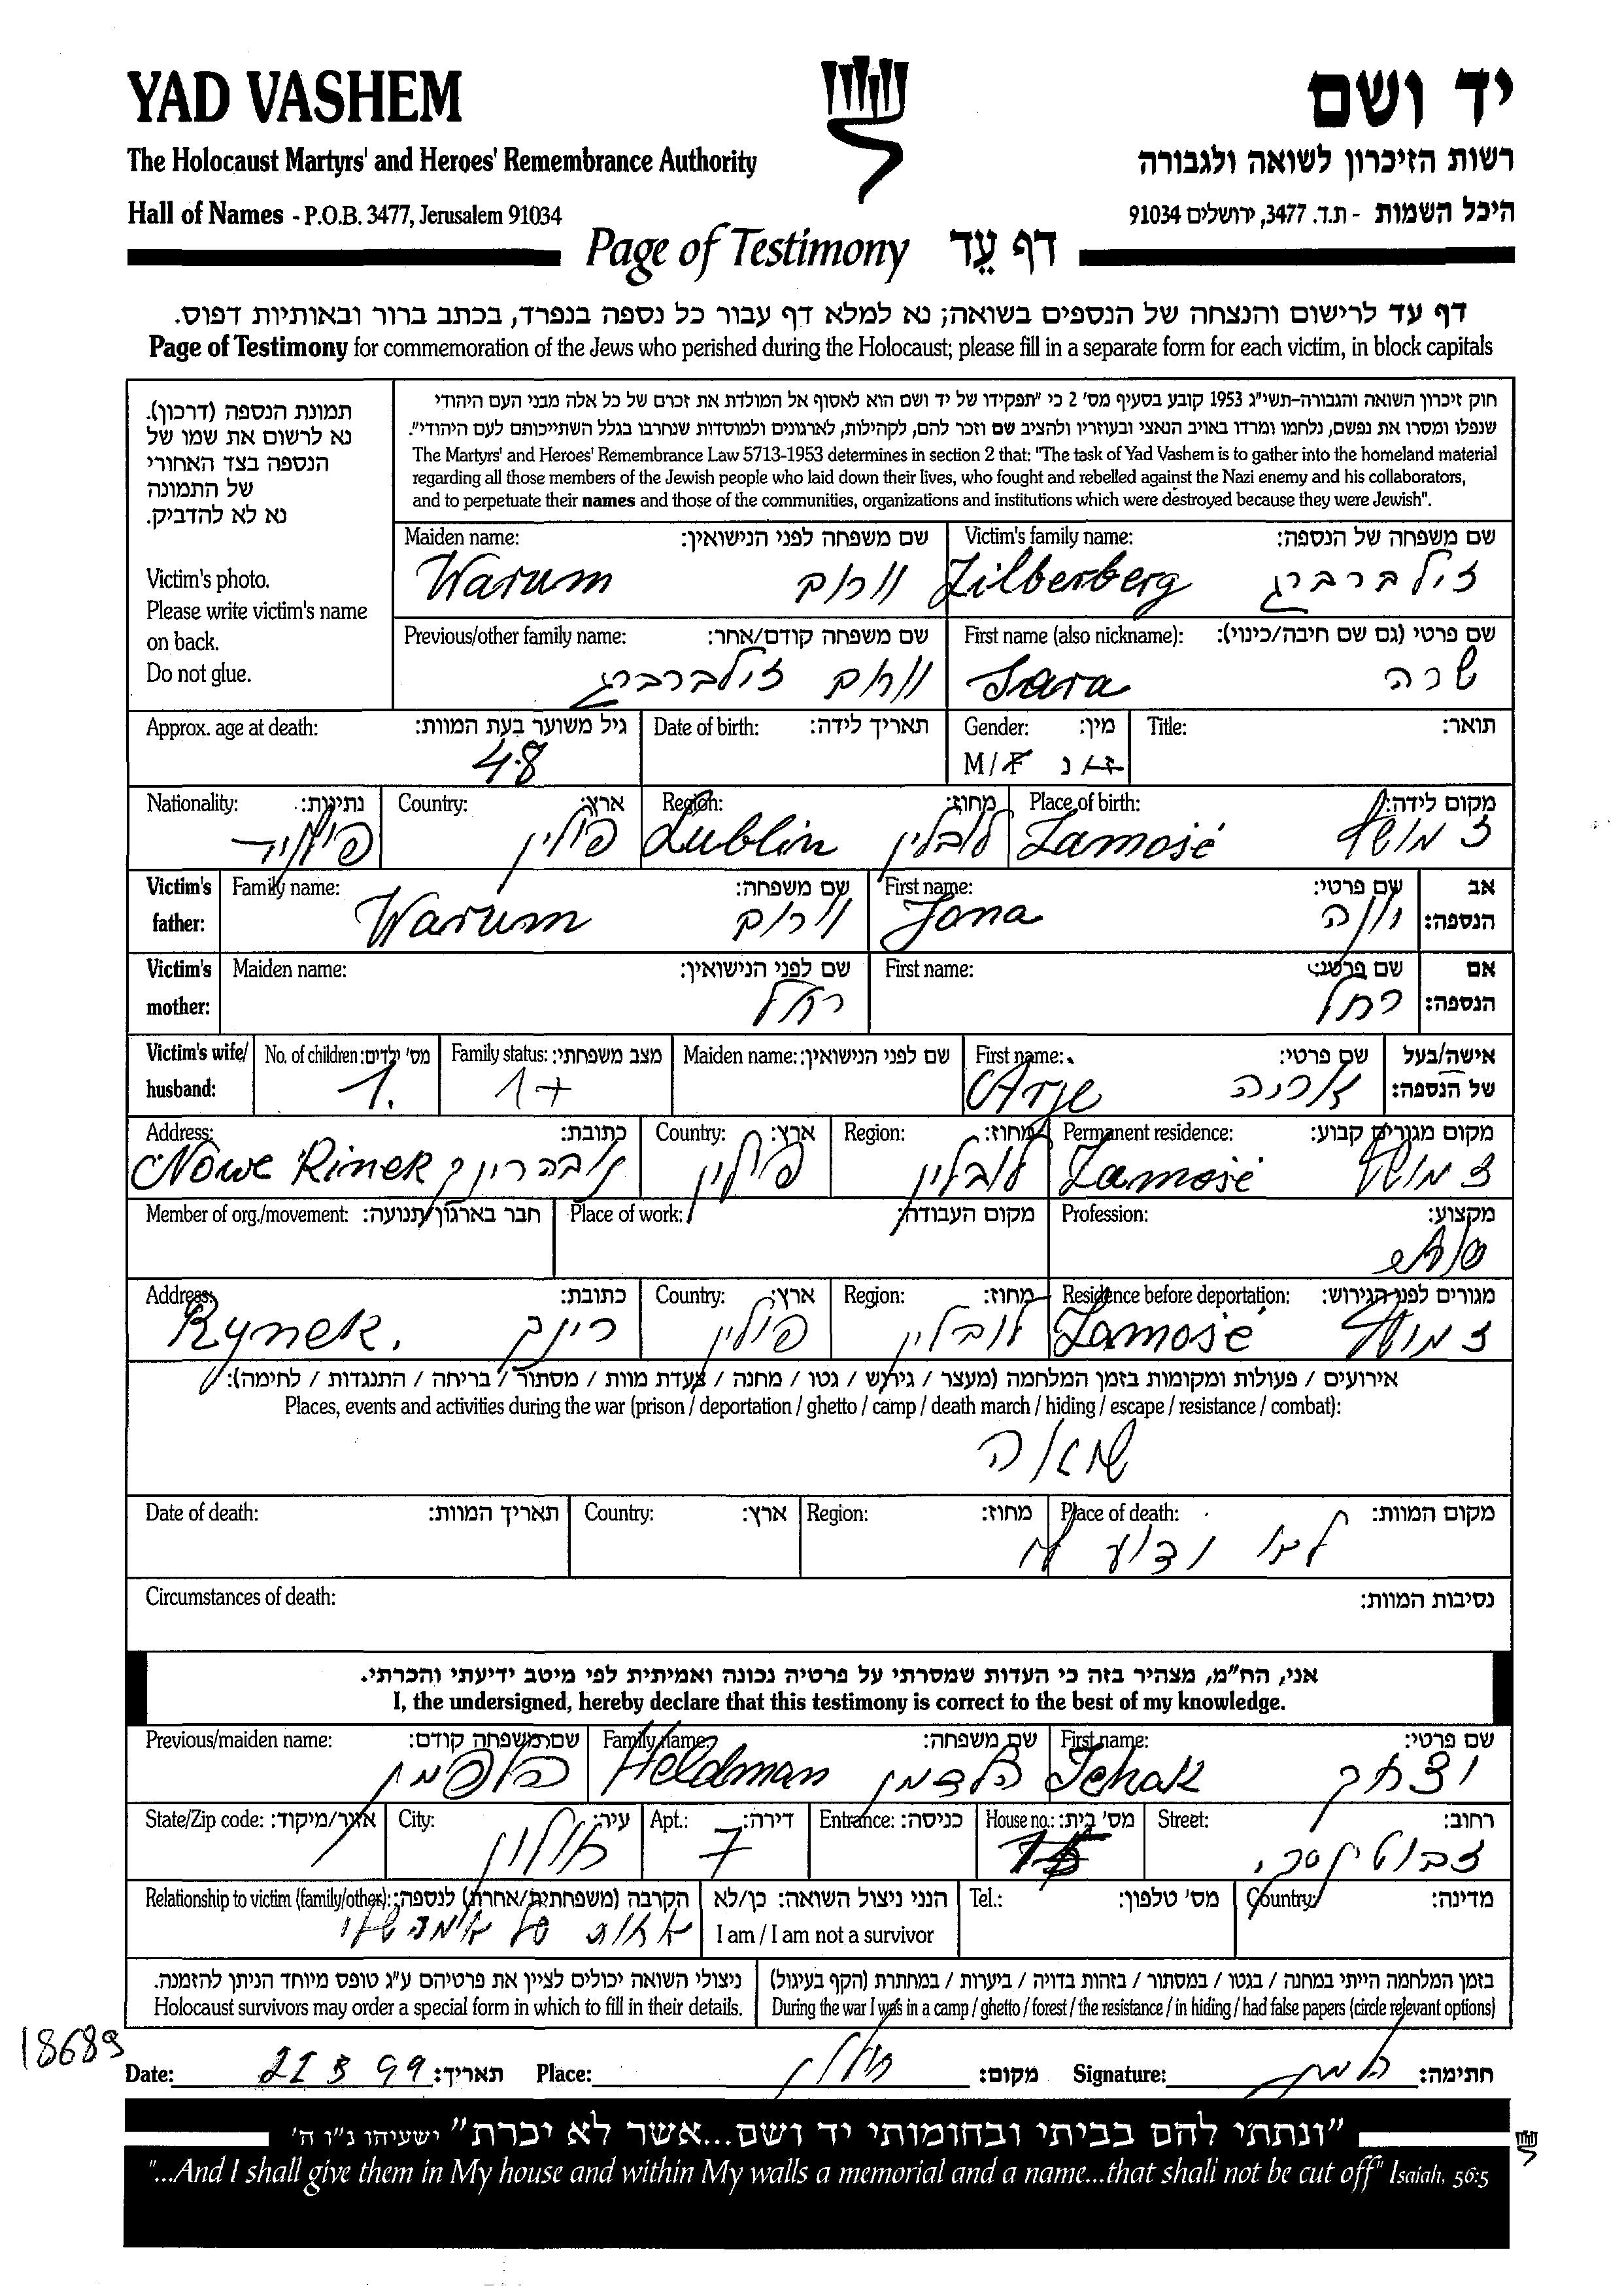 YAD VASHEM יד ושם
The Holocaust Martyrs' and Heroes' Remembrance Authority רשות הזיכרון לשואה ולגבורה
Hall of Names - P.O.B. 3477, Jerusalem 91034 היכל השמות - ת.ד. 3477, ירושלים 91034
Page of Testimony דף עֵד
דף עד לרישום והנצחה של הנספים בשואה; נא למלא דף עבור כל נספה בנפרד, בכתב ברור ובאותיות דפוס.
Page of Testimony for commemoration of the Jews who perished during the Holocaust; please fill in a separate form for each victim, in block capitals
תמונת הנספה (דרכון).
נא לרשום את שמו של
הנספה בצד האחורי
של התמונה
נא לא להדביק.
Victim's photo.
Please write victim's name
on back.
Do not glue.
חוק זיכרון השואה והגבורה-תשי"ג 1953 קובע בסעיף מס' 2 כי "תפקידו של יד ושם הוא לאסוף אל המולדת את זכרם של כל אלה מבני העם היהודי
שנפלו ומסרו את נפשם, נלחמו ומרדו באויב הנאצי ובעוזריו ולהציב שם וזכר להם, לקהילות, לארגונים ולמוסדות שנחרבו בגלל השתייכותם לעם היהודי".
The Martyrs' and Heroes' Remembrance Law 5713-1953 determines in section 2 that: "The task of Yad Vashem is to gather into the homeland material
regarding all those members of the Jewish people who laid down their lives, who fought and rebelled against the Nazi enemy and his collaborators,
and to perpetuate their names and those of the communities, organizations and institutions which were destroyed because they were Jewish".
Maiden name: שם משפחה לפני הנישואין: Victim's family name: שם משפחה של הנספה:
Warum ורום Zilberberg זילברברג
Previous/other family name: שם משפחה קודם/אחר: First name (also nickname): שם פרטי (גם שם חיבה/כינוי):
ורום זילברברג Sara שרה
Approx. age at death: גיל משוער בעת המוות: Date of birth: תאריך לידה: Gender: מין: Title: תואר:
48 M/F ז/נ
Nationality: נתינות: Country: ארץ: Region: מחוז: Place of birth: מקום לידה:
פולין Lublin לובלין Zamość זמושץ
Victim's father: Family name: שם משפחה: First name: שם פרטי: אב הנספה:
Warum ורום Jona יונה
Victim's mother: Maiden name: שם לפני הנישואין: First name: שם פרטי: אם הנספה:
רחל
Victim's wife/husband: No. of children: מס' ילדים: Family status: מצב משפחתי: Maiden name: שם לפני הנישואין: First name: שם פרטי: אישה/בעל של הנספה:
1. 1+ Arje אריה
Address: כתובת: Country: ארץ: Region: מחוז: Permanent residence: מקום מגורים קבוע:
Nowe Rinek פולין לובלין Zamość זמושץ
Member of org./movement: חבר בארגון/תנועה: Place of work: מקום העבודה: Profession: מקצוע:
Address: כתובת: Country: ארץ: Region: מחוז: Residence before deportation: מגורים לפני הגירוש:
Rynek. רינק פולין לובלין Zamość זמושץ
אירועים / פעולות ומקומות בזמן המלחמה (מעצר / גירוש / גטו / מחנה / צעדת מוות / מסתור / בריחה / התנגדות / לחימה):
Places, events and activities during the war (prison / deportation / ghetto / camp / death march / hiding / escape / resistance / combat):
שואה
Date of death: תאריך המוות: Country: ארץ: Region: מחוז: Place of death: מקום המוות:
לא ידוע לי
Circumstances of death: נסיבות המוות:
אני, הח"מ, מצהיר בזה כי העדות שמסרתי על פרטיה נכונה ואמיתית לפי מיטב ידיעתי והכרתי.
I, the undersigned, hereby declare that this testimony is correct to the best of my knowledge.
Previous/maiden name: שם משפחה קודם: Family name: שם משפחה: First name: שם פרטי:
Heldman הלדמן Ichak יצחק
State/Zip code: אזור/מיקוד: City: עיר: Apt.: דירה: Entrance: כניסה: House no.: מס' בית: Street: רחוב:
חולון 7 ז'בוטינסקי
Relationship to victim (family/other): הקרבה (משפחתית/אחרת) לנספה: הנני ניצול השואה: כן/לא Tel.: מס' טלפון: Country: מדינה:
אחות של אימה שלי I am / I am not a survivor
ניצולי השואה יכולים לציין את פרטיהם ע"ג טופס מיוחד הניתן להזמנה. בזמן המלחמה הייתי במחנה / בגטו / במסתור / בזהות בדויה / ביערות / במחתרת (הקף בעיגול)
Holocaust survivors may order a special form in which to fill in their details. During the war I was in a camp / ghetto / forest / the resistance / in hiding / had false papers (circle relevant options)
18689
Date: תאריך: Place: חולון מקום: Signature: חתימה:
"ונתתי להם בביתי ובחומותי יד ושם...אשר לא יכרת" ישעיהו נ"ו ה'
"...And I shall give them in My house and within My walls a memorial and a name...that shall not be cut off" Isaiah, 56:5